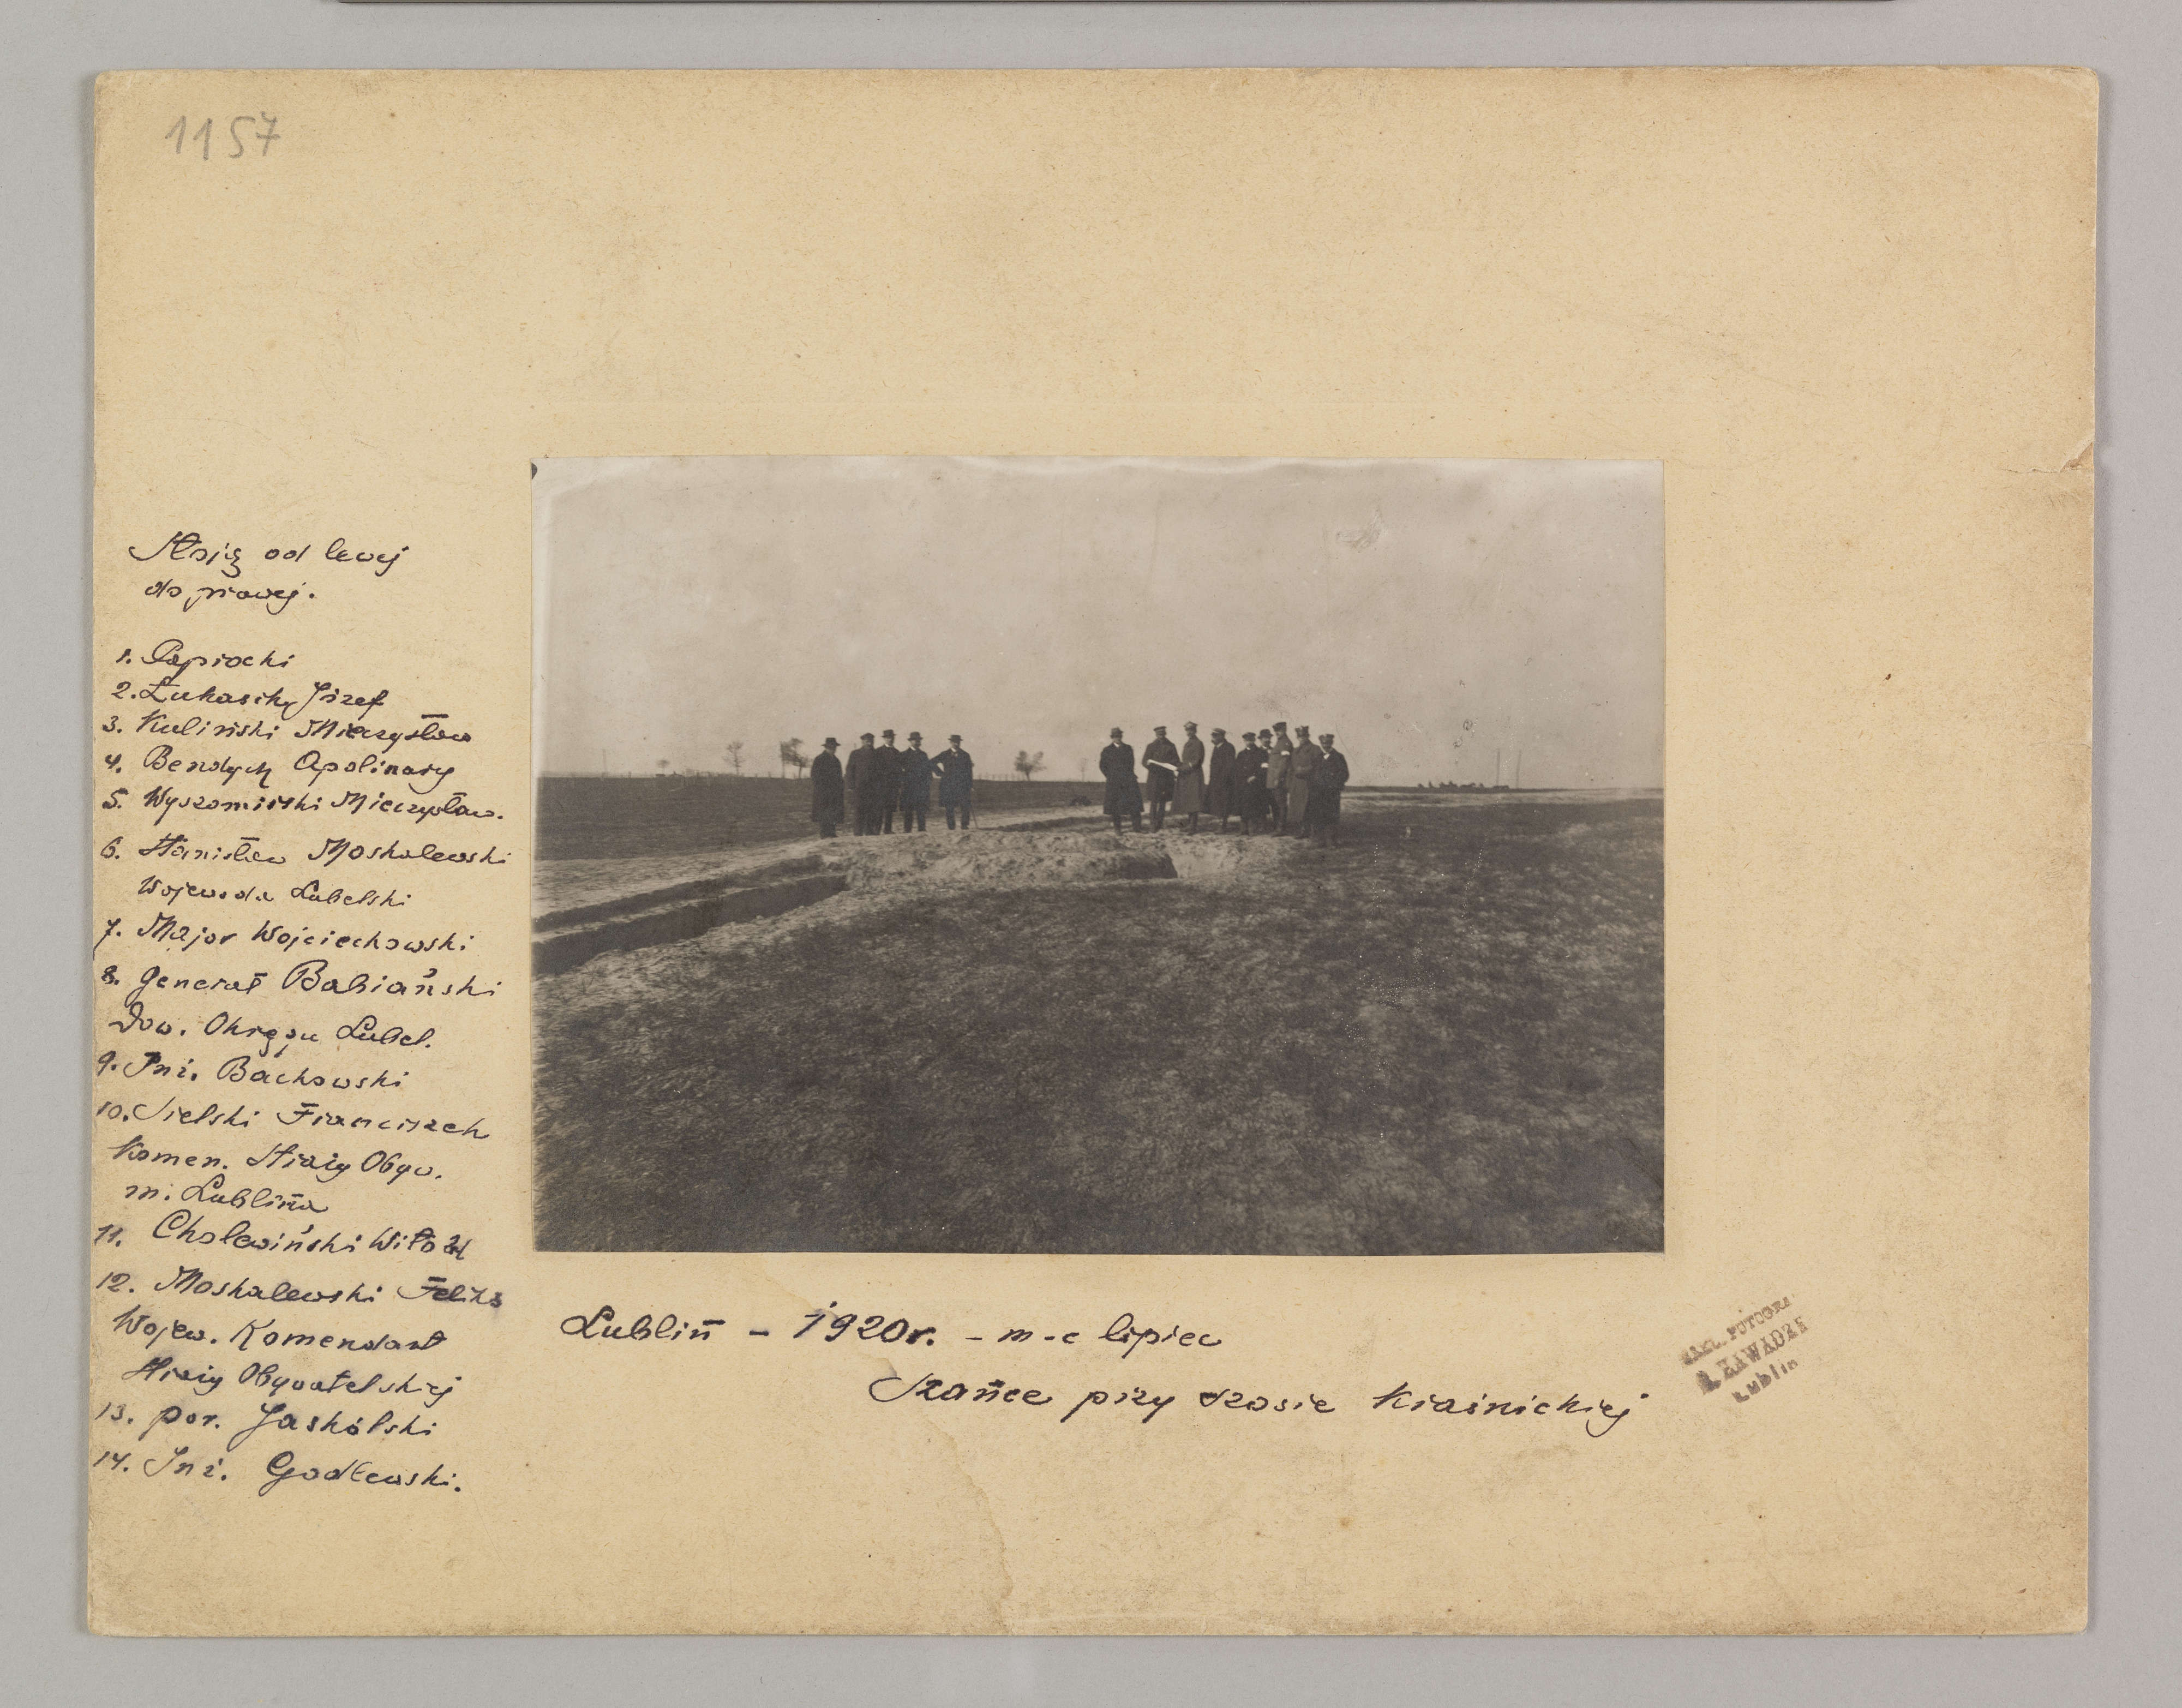 1157
Stoją od lewej
do prawej.
1. Papiocki
2. Łukasik Józef
3. Kuliński Mieczysław
4. Bendych Apolinary
5. Wyszomirski Mieczysław.
6. Stanisław Moskalewski
Wojewoda Lubelski
7. Major Wojciechowski
8. Generał Babiański
Dow. Okręgu Lubel.
9. Inż. Bachowski
10. Sielski Franciszek
Komen. Straży Obyw.
m. Lublina
11. Cholewiński Witold
12. Moskalewski Feliks
Wojew. Komendant
Straży Obywatelskiej
13. por. Jaskólski
14. Inż. Godlewski.
Lublin - 1920r. - m-c lipiec
Szańce przy szosie Kraśnickiej
ZAKŁ. FOTOGRA
ZAWADZK
Lublin